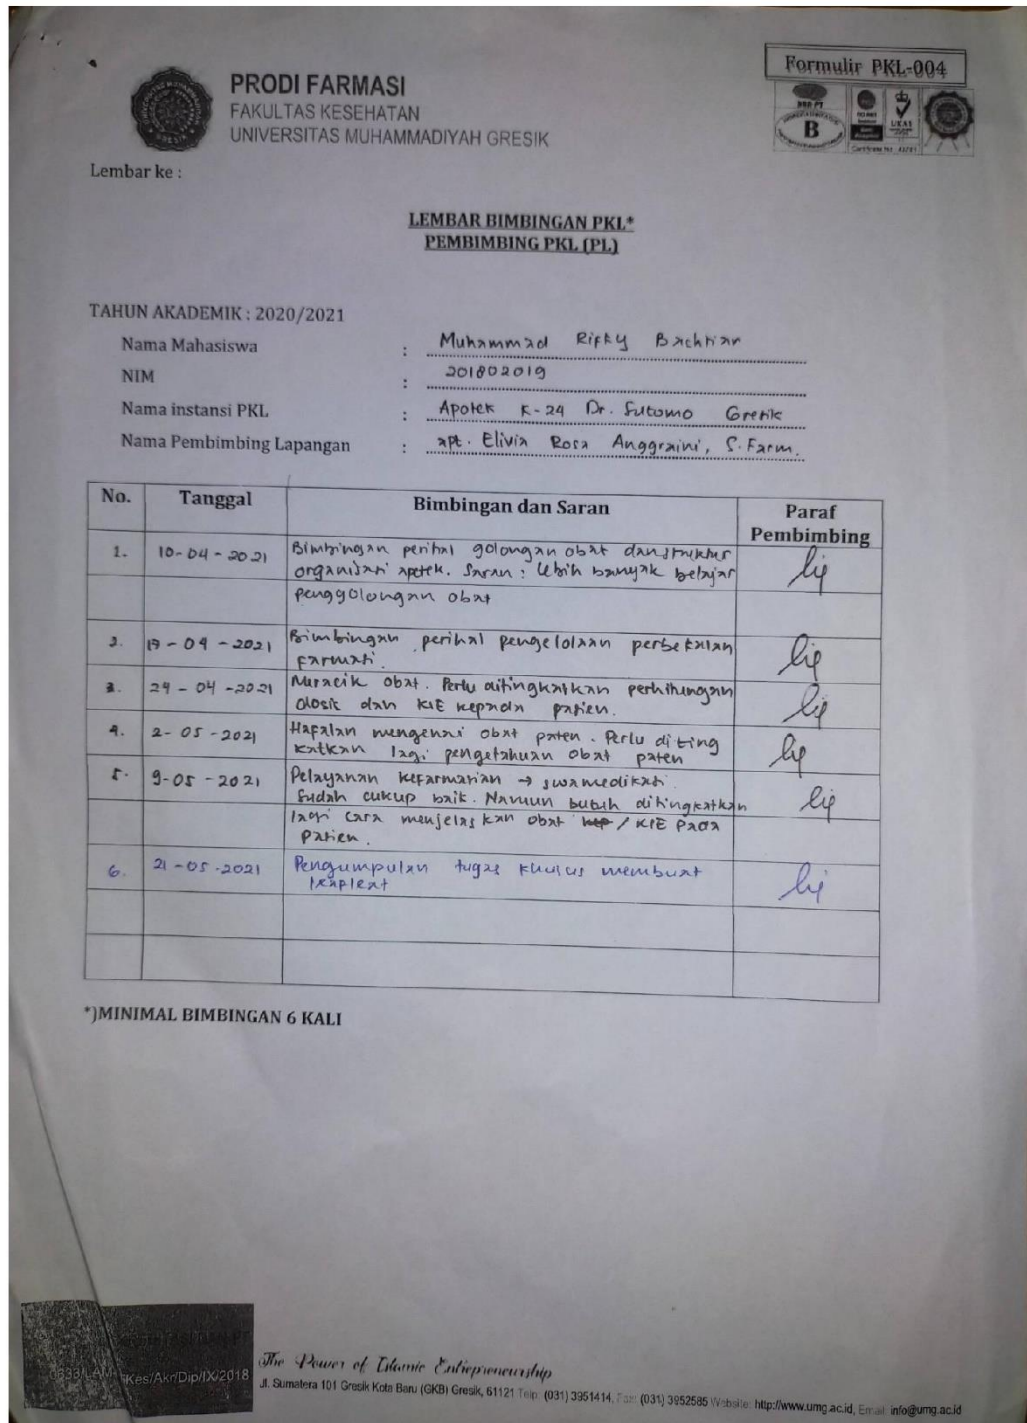 Formulir PKL-004
PRODI FARMASI
FAKULTAS KESEHATAN
UNIVERSITAS MUHAMMADIYAH GRESIK
B
UKAS
Lembar ke :
LEMBAR BIMBINGAN PKL*
PEMBIMBING PKL (PL)
TAHUN AKADEMIK : 2020/2021
Nama Mahasiswa : Muhammad Rifky Bachtiar
NIM : 201802019
Nama instansi PKL : Apotek K-24 Dr. Sutomo Gresik
Nama Pembimbing Lapangan : apt. Elivia Rosa Anggraini, S.Farm.
No. Tanggal Bimbingan dan Saran Paraf Pembimbing
1. 10-04-2021 Bimbingan perihal golongan obat dan struktur
organisasi apotek. Saran : lebih banyak belajar
penggolongan obat
2. 17-04-2021 Bimbingan perihal pengelolaan perbekalan
farmasi.
3. 24-04-2021 Meracik obat. Perlu ditingkatkan perhitungan
dosis dan KIE kepada pasien.
4. 2-05-2021 Hafalan mengenai obat paten. Perlu diting
katkan lagi pengetahuan obat paten
5. 9-05-2021 Pelayanan kefarmasian → swamedikasi.
Sudah cukup baik. Namun butuh ditingkatkan
lagi cara menjelaskan obat / KIE pada
pasien.
6. 21-05-2021 Pengumpulan tugas khusus membuat
leapleat
*)MINIMAL BIMBINGAN 6 KALI
Kes/Akr/Dip/IX/2018
The Power of Islamic Entrepreneurship
Jl. Sumatera 101 Gresik Kota Baru (GKB) Gresik, 61121 Telp. (031) 3951414, Fax: (031) 3952585 Website: http://www.umg.ac.id, Email: info@umg.ac.id